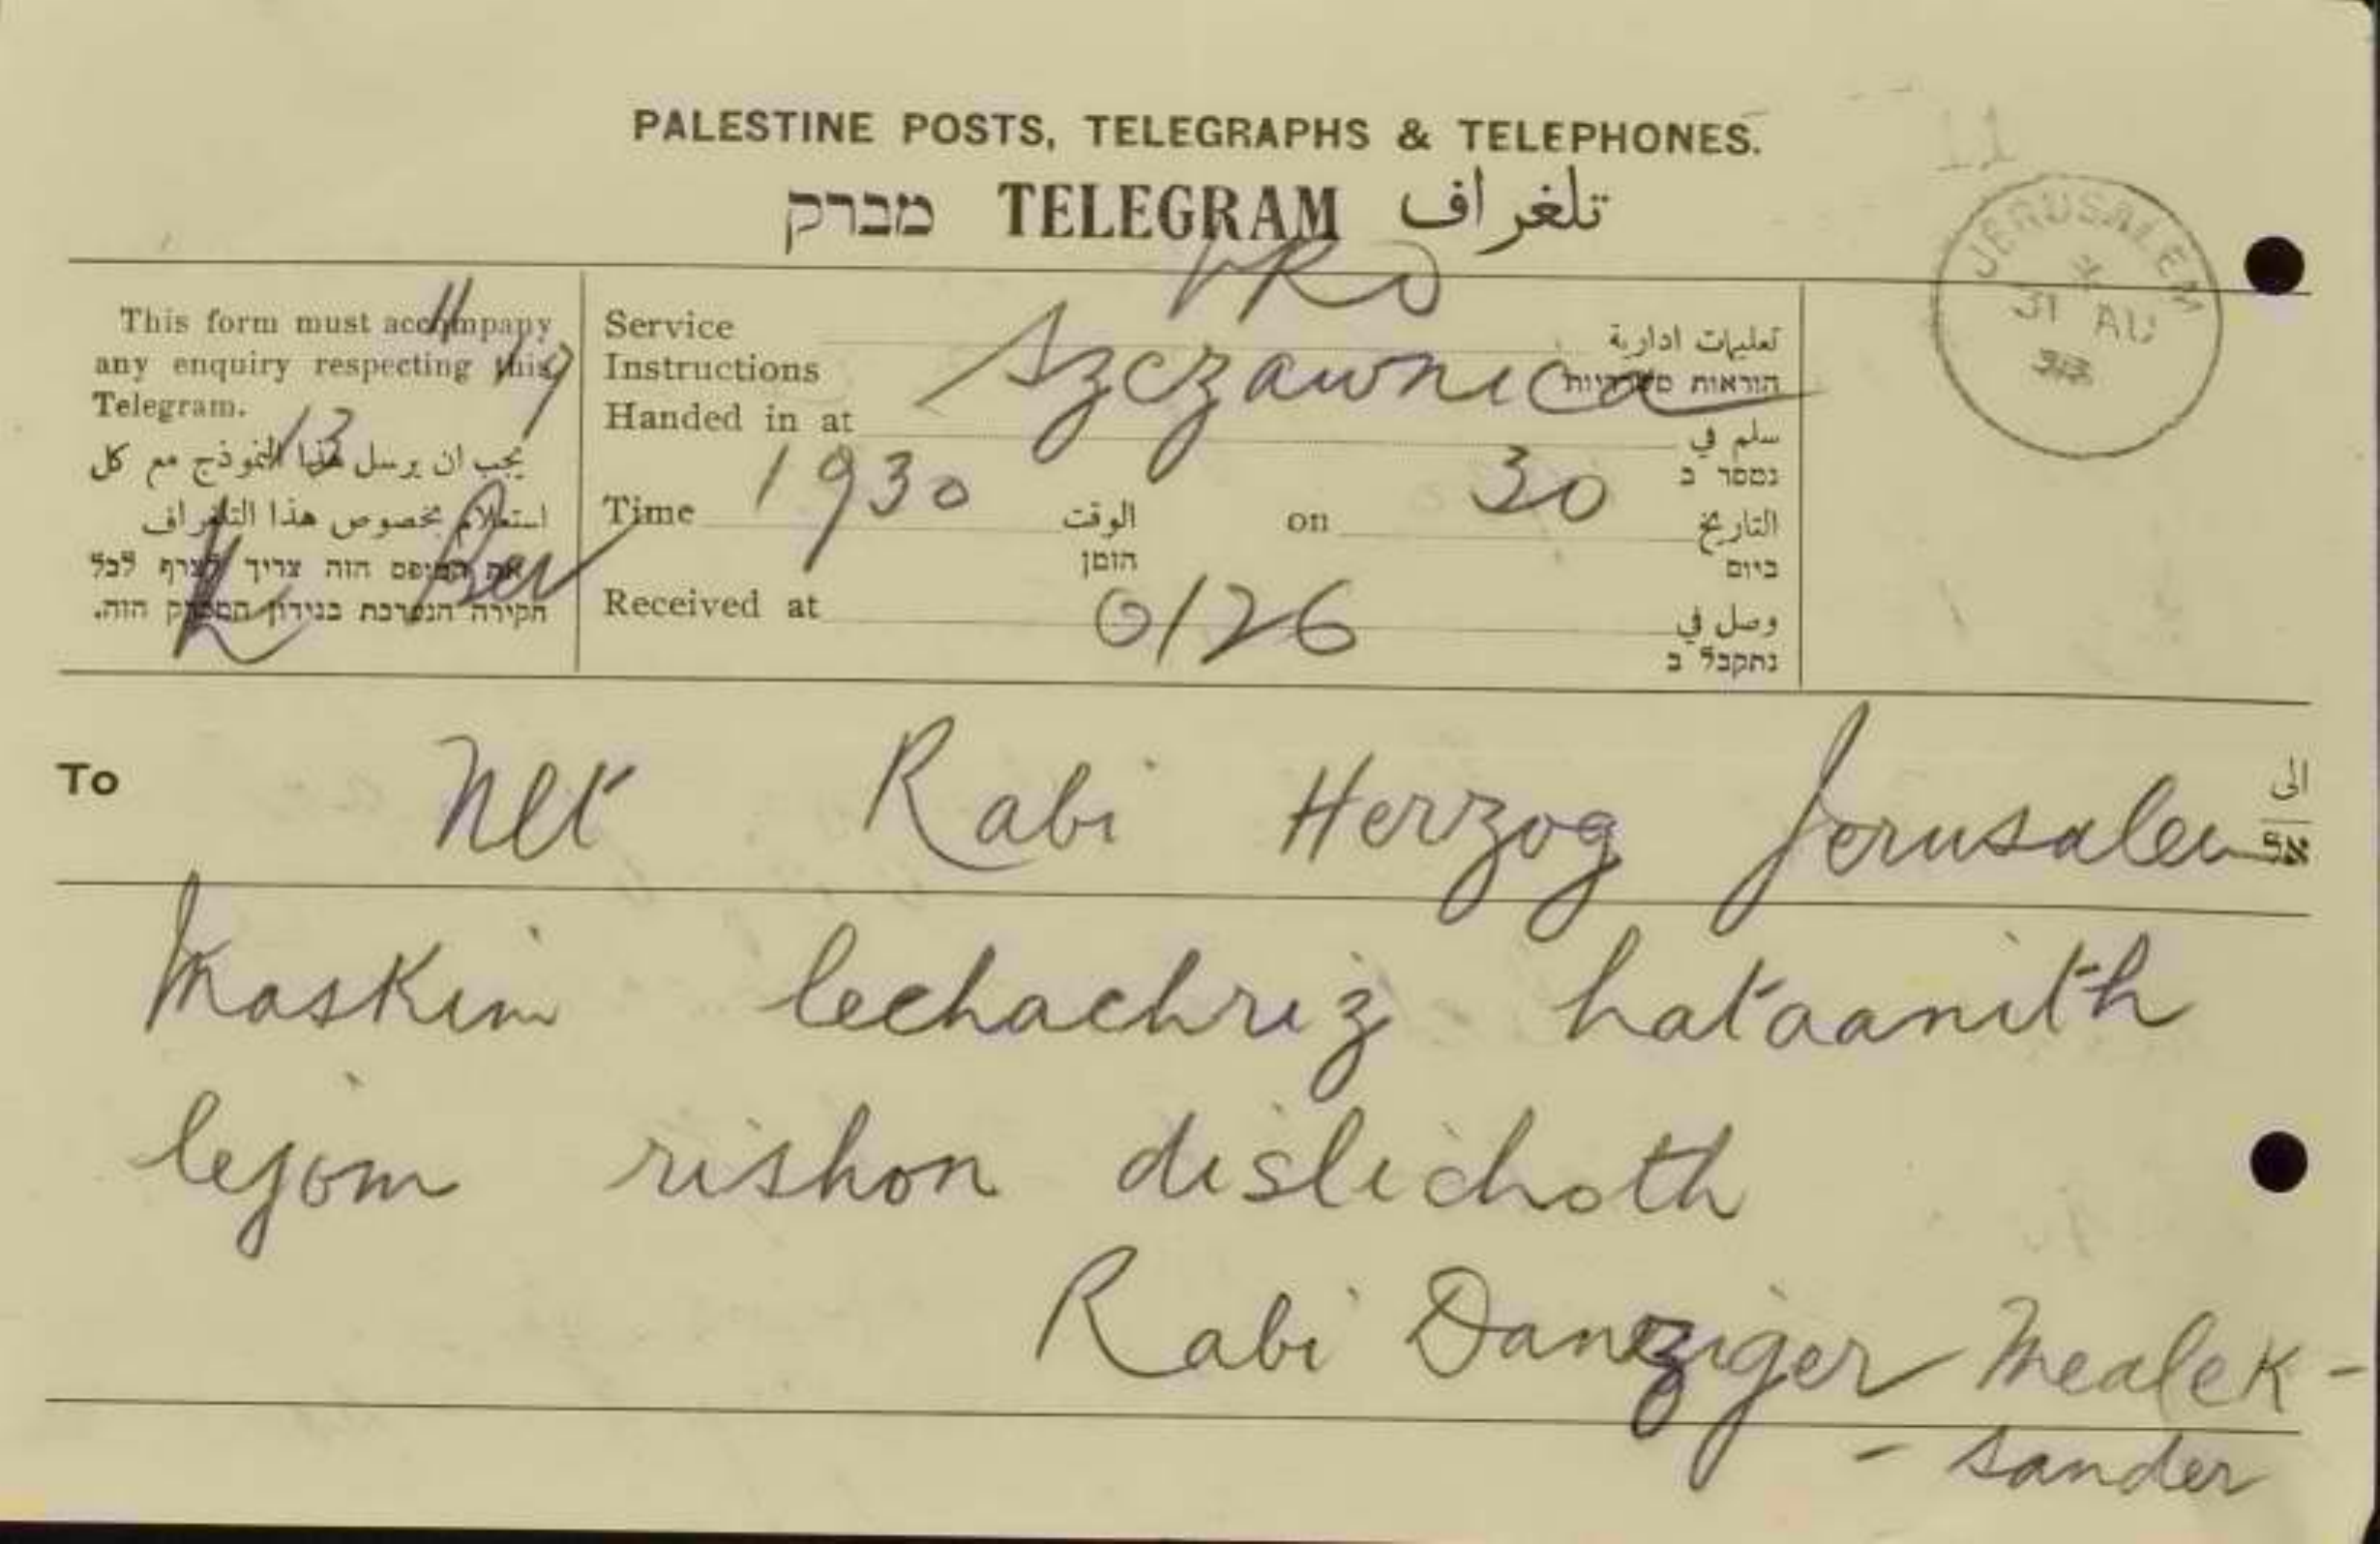 PALESTINE POSTS, TELEGRAPHS & TELEPHONES.
מברק TELEGRAM تلغراف
JERUSALEM
31 AU
This form must accompany
any enquiry respecting this
Telegram.
يجب ان يرسل هذا النموذج مع كل
استعلام بخصوص هذا التلغراف
את הטופס הזה צריך לצרף לכל
חקירה הנערכת בנידון המברק הזה.
11
13
Service
Instructions
تعليمات ادارية
הוראות משרדיות
Handed in at Szczawnica سلم في
נמסר ב
Time 1930 الوقت
הזמן
on 30 التاريخ
ביום
Received at 0126 وصل في
נתקבל ב
To Nlt Rabi Herzog Jerusalem الى
אל
Maskim lechachriz hataanith
lejom rishon dislichoth
Rabi Danziger Mealek-
- sander